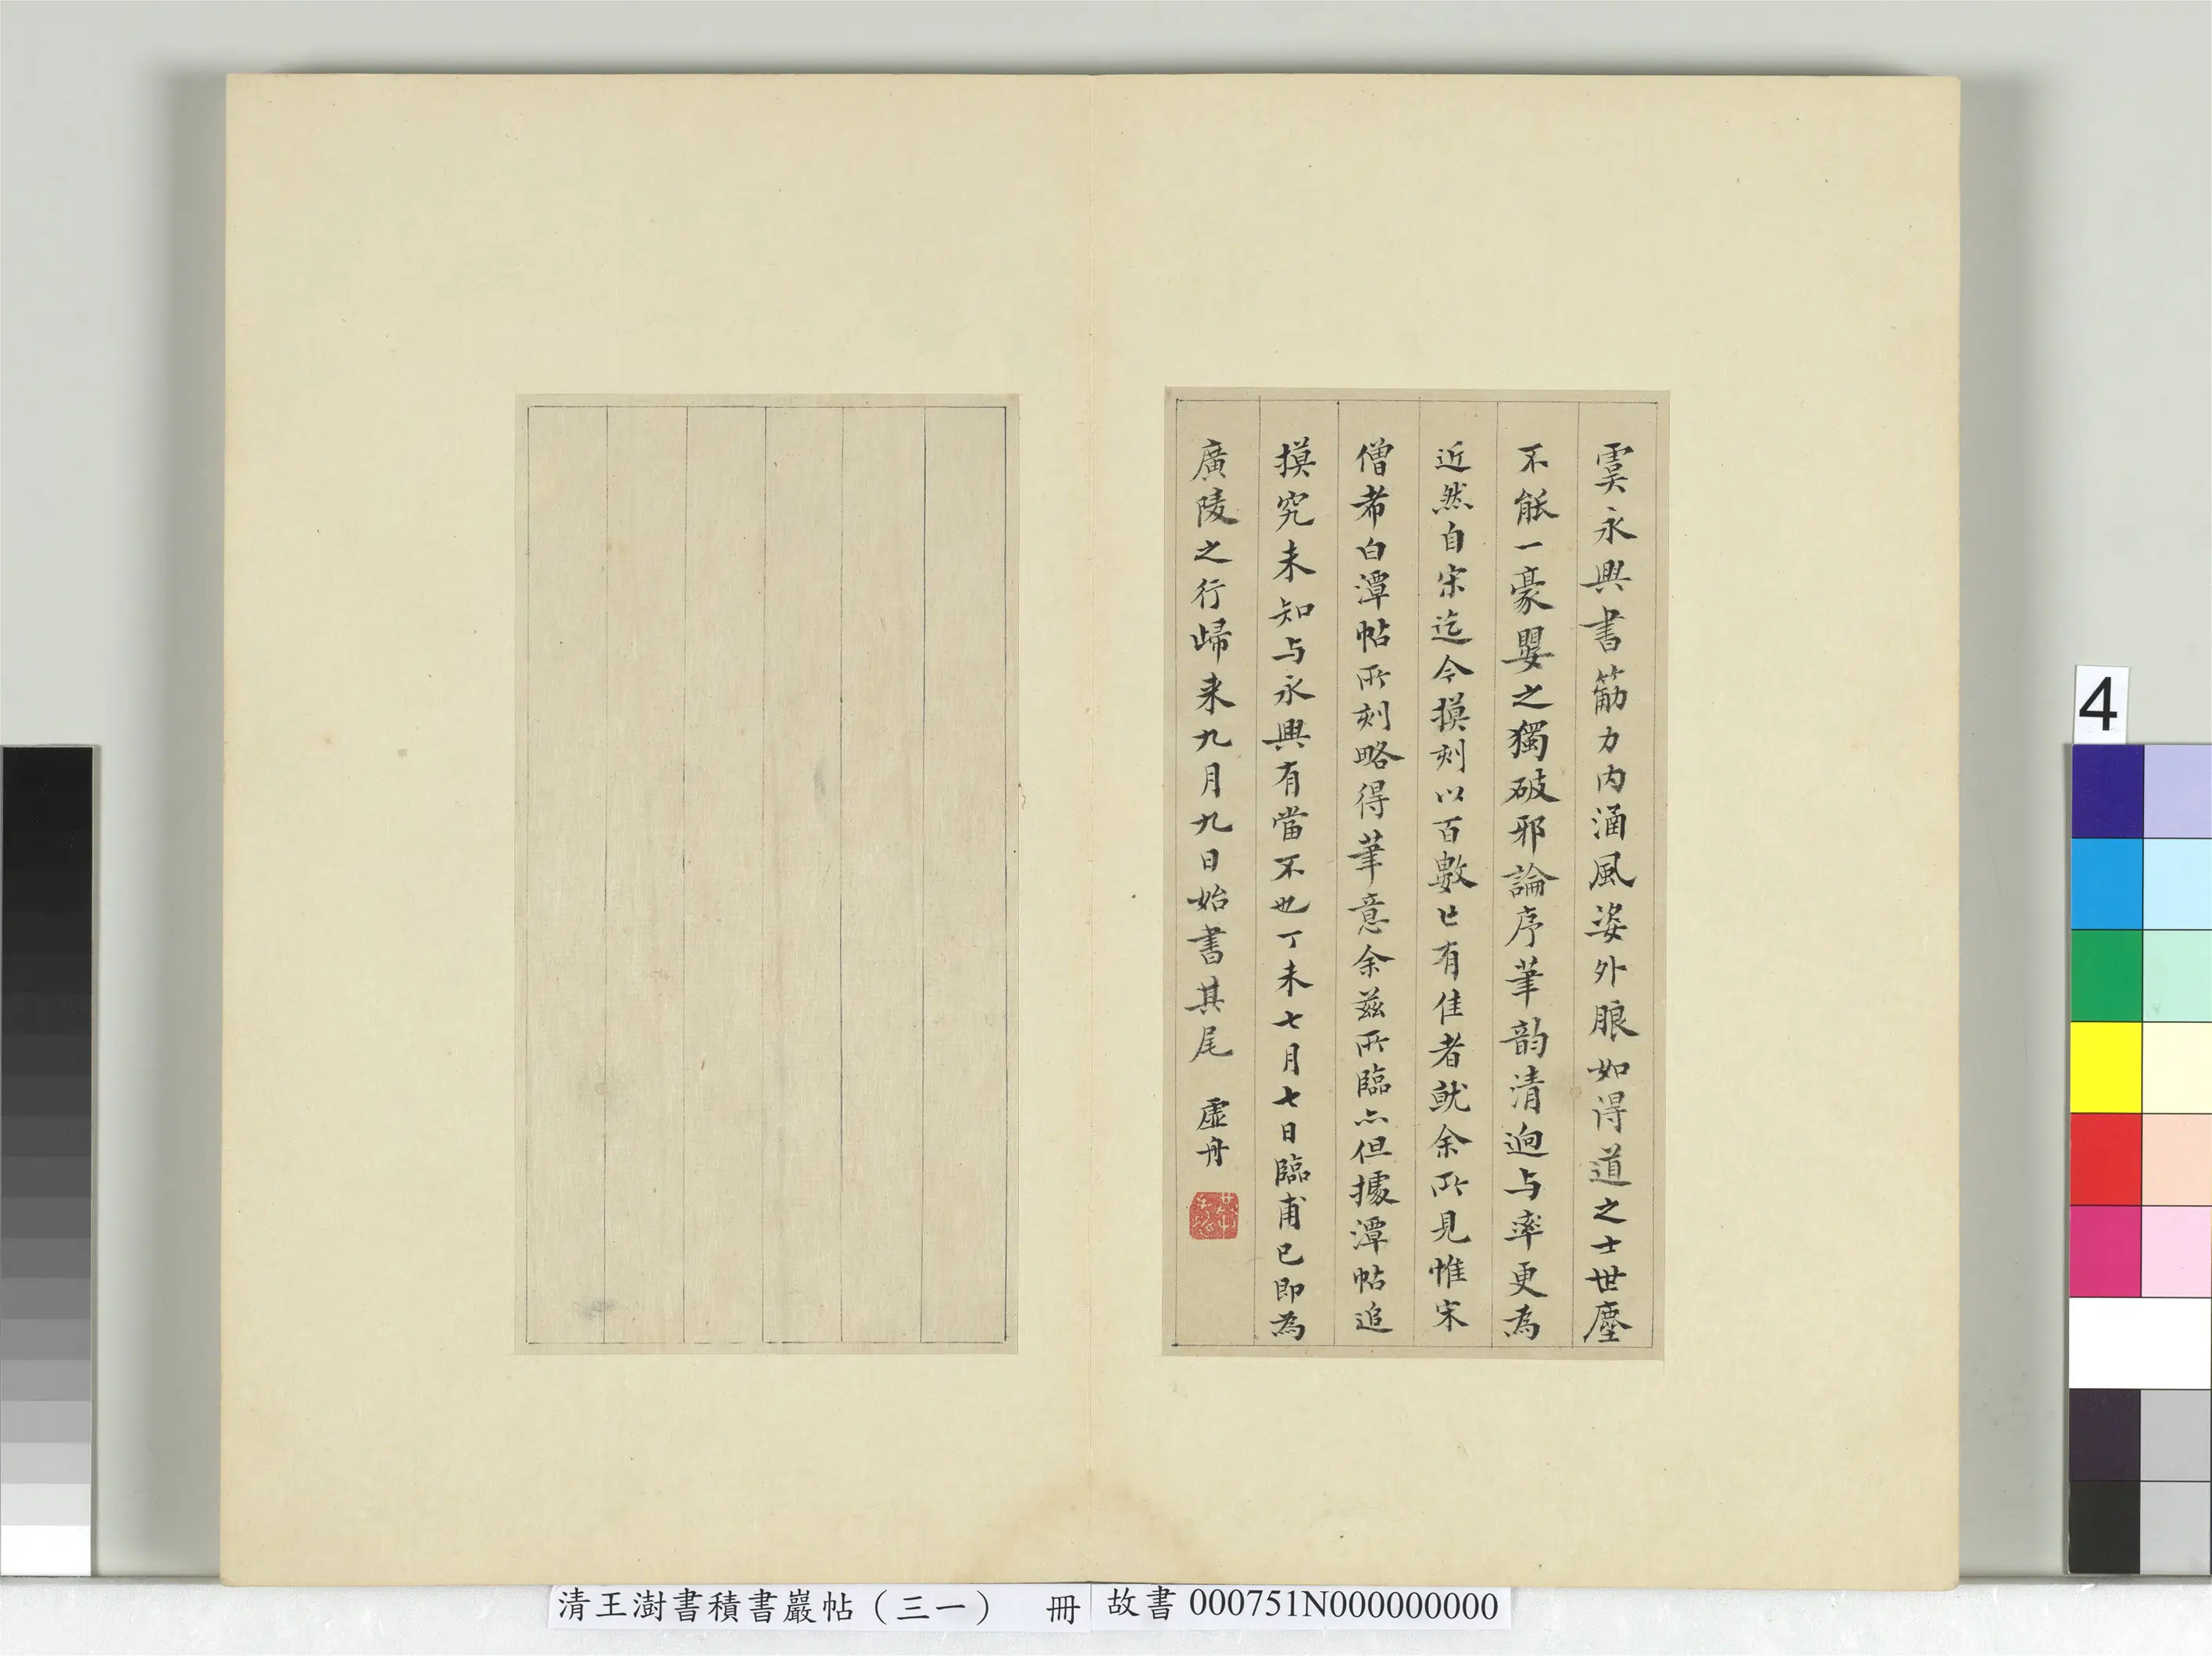 虞永興書筋力內涵風姿外朖如得道之士世塵
不能一豪嬰之獨破邪論序筆韵清迥与率更為
近然自宋迄今摸刻以百數匕有佳者就余所見惟宋
僧希白潭帖所刻略得筆意余茲所臨亦但據潭帖追
摸究未知与永興有當不也丁未七月七日臨甫已即為
廣陵之行歸来九月九日始書其尾 虛舟
4
清王澍書積書巖帖（三一） 冊
故書 000751N000000000